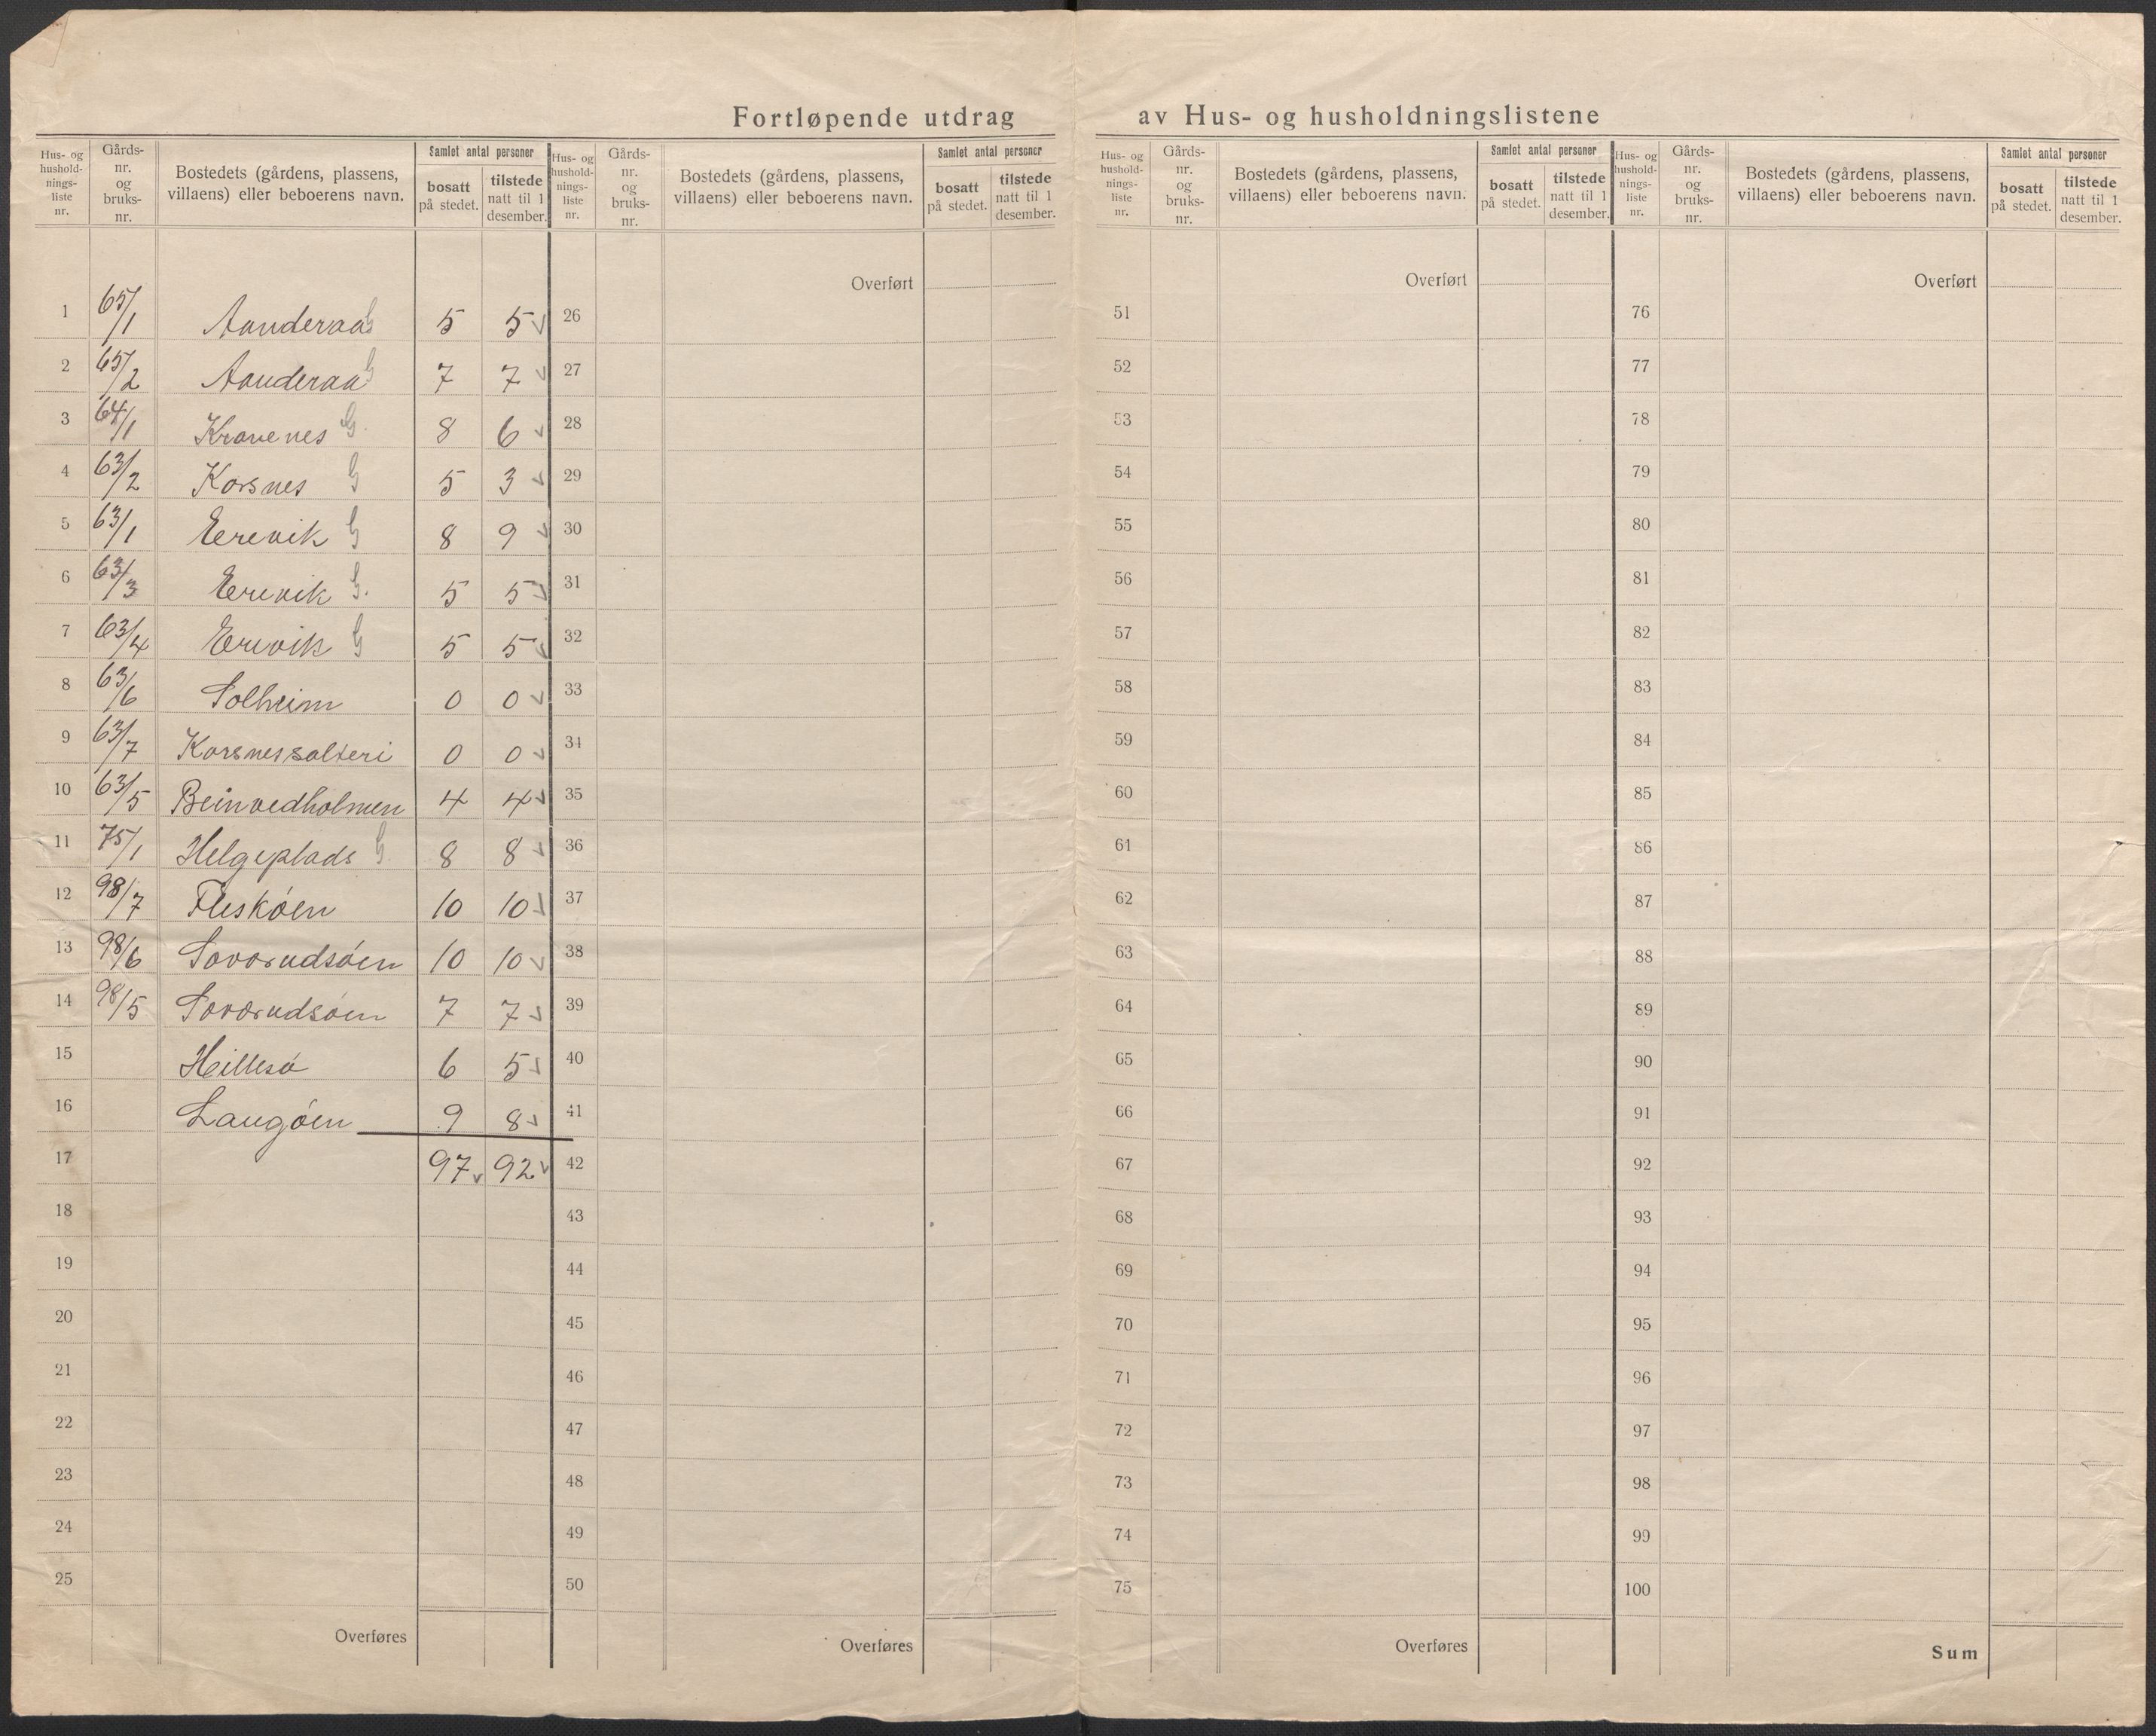 Fortløpende utdrag av Hus- og husholdningslistene
Hus- og hushold-nings-liste nr. Gårds-nr. og bruks-nr. Bostedets (gårdens, plassens, villaens) eller beboerens navn. Samlet antal personer bosatt på stedet. tilstede natt til 1 desember.
Hus- og hushold-nings-liste nr. Gårds-nr. og bruks-nr. Bostedets (gårdens, plassens, villaens) eller beboerens navn. Samlet antal personer bosatt på stedet. tilstede natt til 1 desember.
Hus- og hushold-nings-liste nr. Gårds-nr. og bruks-nr. Bostedets (gårdens, plassens, villaens) eller beboerens navn. Samlet antal personer bosatt på stedet. tilstede natt til 1 desember.
Hus- og hushold-nings-liste nr. Gårds-nr. og bruks-nr. Bostedets (gårdens, plassens, villaens) eller beboerens navn. Samlet antal personer bosatt på stedet. tilstede natt til 1 desember.
Overført Overført Overført
1 65/1 Aanderaa G 5 5 26 51 76
2 65/2 Aanderaa G 7 7 27 52 77
3 64/1 Kranenes G. 8 6 28 53 78
4 63/2 Korsnes G 5 3 29 54 79
5 63/1 Erevik G 8 9 30 55 80
6 63/3 Erevik G. 5 5 31 56 81
7 63/4 Erevik G 5 5 32 57 82
8 63/6 Solheim 0 0 33 58 83
9 63/7 Korsnessalteri 0 0 34 59 84
10 63/5 Beinvedholmen 4 4 35 60 85
11 75/1 Helgeplads G. 8 8 36 61 86
12 98/7 Fleskøen 10 10 37 62 87
13 98/6 10 10 38 63 88
14 98/5 7 7 39 64 89
15 Heillesø 6 5 40 65 90
16 Langøen 9 8 41 66 91
17 97 92 42 67 92
18 43 68 93
19 44 69 94
20 45 70 95
21 46 71 96
22 47 72 97
23 48 73 98
24 49 74 99
25 50 75 100
Overføres Overføres Overføres Sum